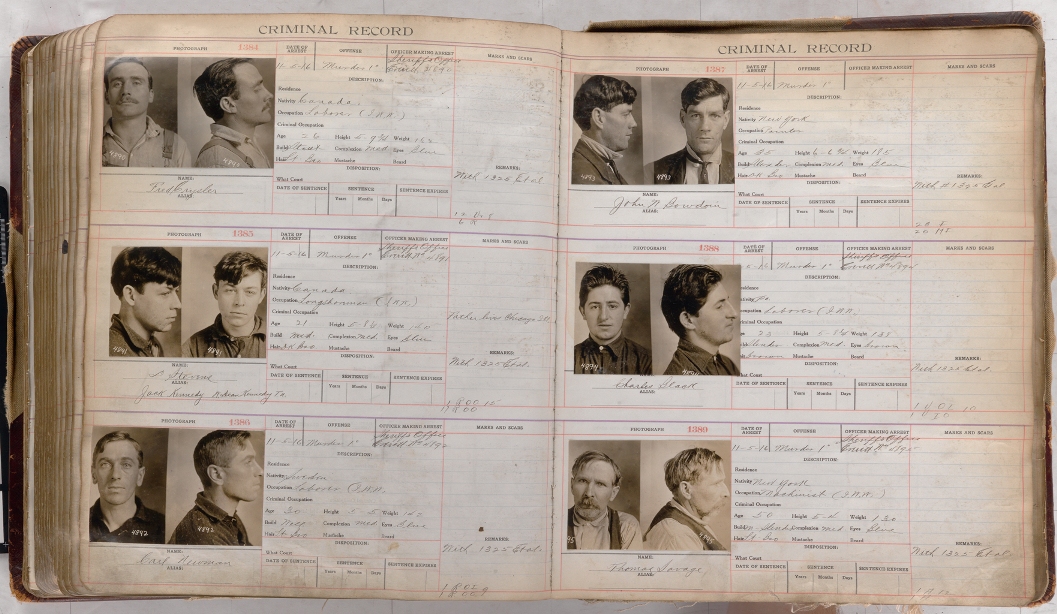 CRIMINAL RECORD
PHOTOGRAPH 1384 DATE OF ARREST OFFENSE OFFICER MAKING ARREST MARKS AND SCARS
11-5-16 Murder 1° Sheriffs Office
Everett
DESCRIPTION:
Residence
Nativity Canada
Occupation Laborer (I.W.W.)
Criminal Occupation
Age 26 Height 5-9¾ Weight
Build Complexion Med. Eyes Blue
Hair Lt Bro Mustache Beard
DISPOSITION:
What Court
NAME:
ALIAS:
DATE OF SENTENCE SENTENCE SENTENCE EXPIRES
Years Months Days
REMARKS:
Neth 1325 Et al.
4840
PHOTOGRAPH 1385 DATE OF ARREST OFFENSE OFFICER MAKING ARREST MARKS AND SCARS
11-5-16 Murder 1° Sheriffs Office
Everett
DESCRIPTION:
Residence
Nativity Canada
Occupation Longshoreman (I.W.W.)
Criminal Occupation
Age 21 Height Weight
Build Med. Complexion Med. Eyes Blue
Hair Dk Bro Mustache Beard
DISPOSITION:
What Court
Father lives Chicago Ill.
4841 4841
NAME:
ALIAS:
Jack Kennedy
DATE OF SENTENCE SENTENCE SENTENCE EXPIRES
Years Months Days
REMARKS:
Neth 1325 Et al.
PHOTOGRAPH 1386 DATE OF ARREST OFFENSE OFFICER MAKING ARREST MARKS AND SCARS
11-5-16 Murder 1° Sheriffs Office
Everett
DESCRIPTION:
Residence
Nativity Sweden
Occupation Laborer (I.W.W.)
Criminal Occupation
Age 30 Height Weight
Build Complexion Med Eyes Blue
Hair Lt Bro Mustache Beard
DISPOSITION:
What Court
4842 4842
NAME:
Carl Newman
ALIAS:
DATE OF SENTENCE SENTENCE SENTENCE EXPIRES
Years Months Days
REMARKS:
Neth 1325 Et al.
CRIMINAL RECORD
PHOTOGRAPH 1387 DATE OF ARREST OFFENSE OFFICER MAKING ARREST MARKS AND SCARS
11-5-16 Murder 1°
DESCRIPTION:
Residence
Nativity New York
Occupation Painter
Criminal Occupation
Age 35 Height Weight 185
Build Complexion Med. Eyes Blue
Hair Dk Bro Mustache Beard
DISPOSITION:
What Court
4893 4893
NAME:
John N. Bowdoin
ALIAS:
DATE OF SENTENCE SENTENCE SENTENCE EXPIRES
Years Months Days
REMARKS:
Neth #1325 Et al.
PHOTOGRAPH 1388 DATE OF ARREST OFFENSE OFFICER MAKING ARREST MARKS AND SCARS
5-16 Murder 1° Sheriffs Office
Everett
DESCRIPTION:
Residence
Nativity Pa
Occupation Laborer (I.W.W.)
Criminal Occupation
Age 23 Height Weight 135
Complexion Med. Eyes Brown
Brown Mustache Beard
DISPOSITION:
What Court
4894
NAME:
Charles Black
ALIAS:
DATE OF SENTENCE SENTENCE SENTENCE EXPIRES
Years Months Days
REMARKS:
Neth 1325 Et al
PHOTOGRAPH 1389 DATE OF ARREST OFFENSE OFFICER MAKING ARREST MARKS AND SCARS
11-5-16 Murder 1° Sheriffs Office
Everett
DESCRIPTION:
Residence
Nativity New York
Occupation Machinist (I.W.W.)
Criminal Occupation
Age 50 Height 5-4 Weight 130
Build Complexion Med Eyes Blue
Hair Lt Bro Mustache Beard
DISPOSITION:
What Court
NAME:
Thomas Savage
ALIAS:
DATE OF SENTENCE SENTENCE SENTENCE EXPIRES
Years Months Days
REMARKS:
Neth 1325 Et al.